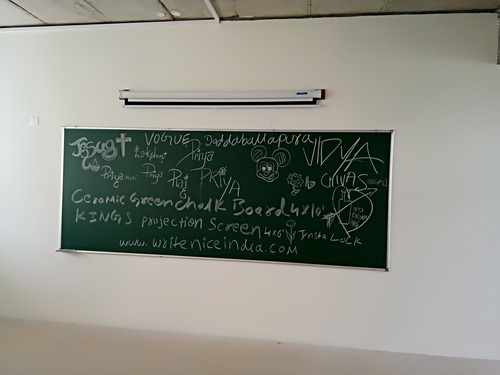 Jesus VOGUE Doddaballapura VIDYA
Lakshmi Priya
Priya Priya Raj PRIYA CHIVAS
Ceramic Green Chalk Board 4x10
KINGS projection Screen 4x6 Tynsta Lock
www.writeniceindia.com